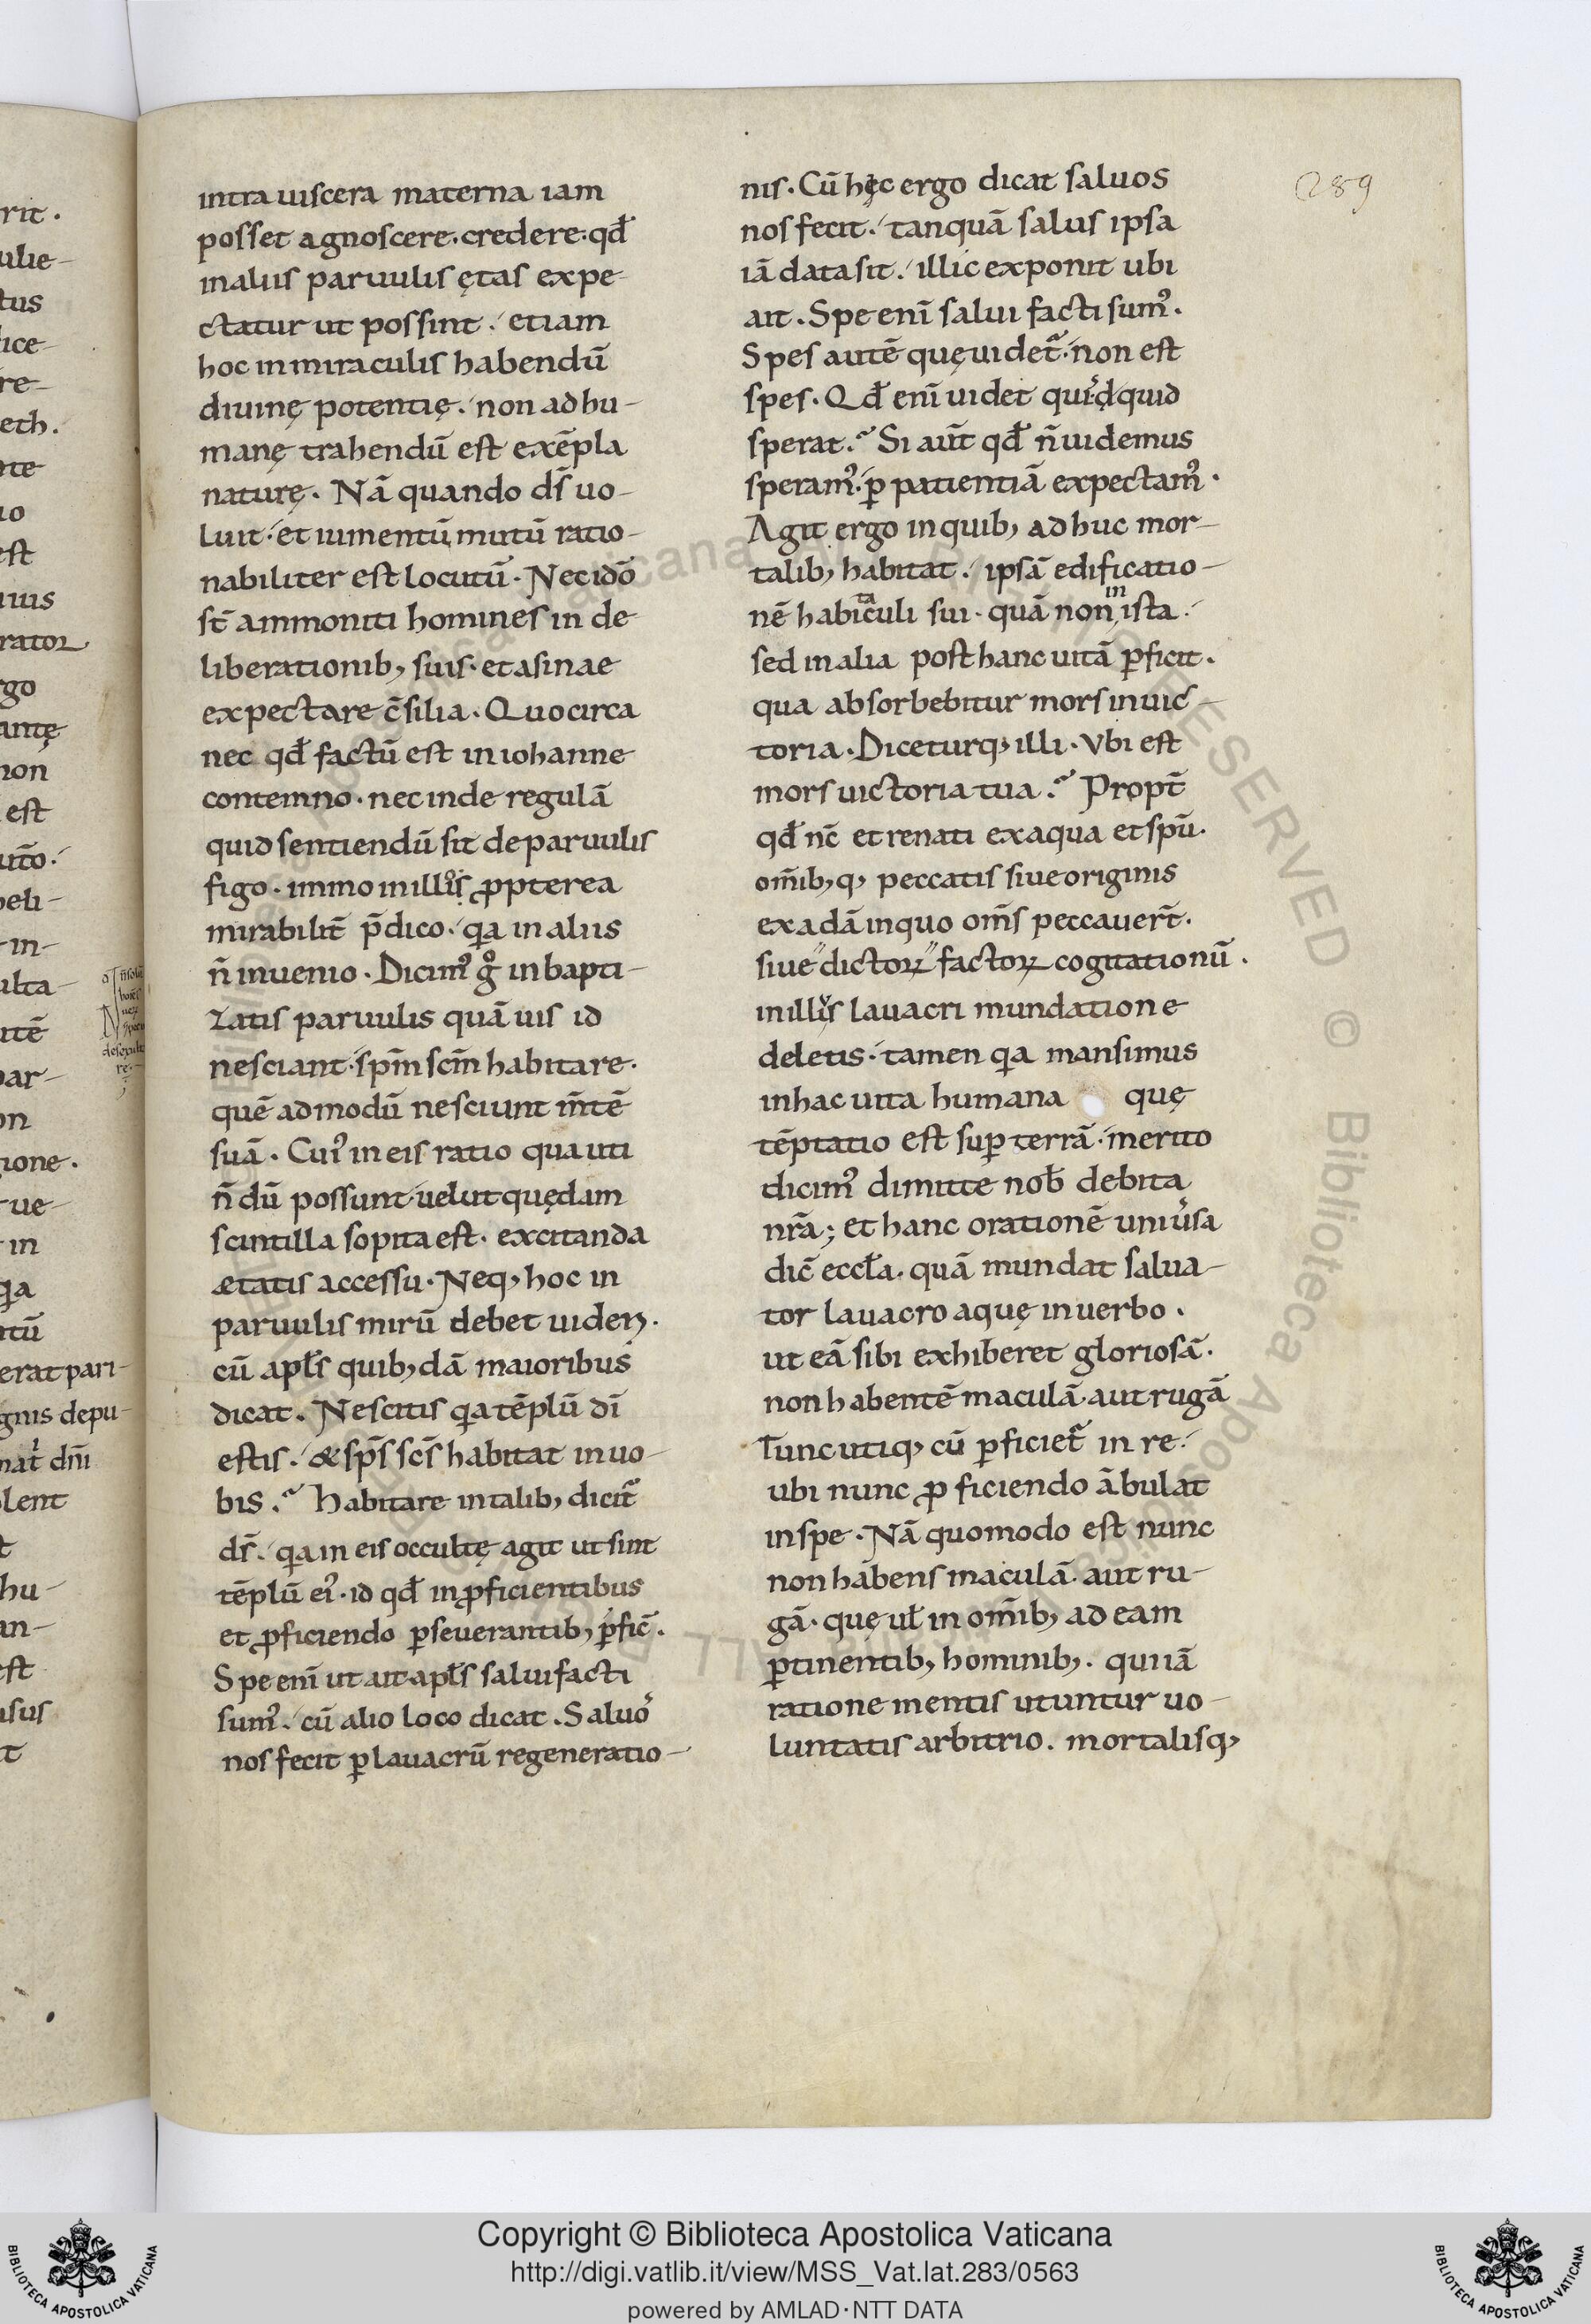 rit.
ulie-
tus
ice-
re-
eth.
nte
uo
est
uius
rator
rgo
antę
non
est
beli-
-in-
ulta-
utē
par-
on
ione.
-ue-
in
erat pari-
gnis depu-
olent
hu-
an-
est
usus
intra uiscera materna iam
posset agnoscere. credere. qđ
in aliis paruulis ętas expe-
ctatur ut possint. etiam
hoc in miraculis habendū
diuinę potentię. non ad hu-
manę trahendū est exēpla
naturę. Nā quando dS̄ uo-
luit. et iumentū mutū ratio-
nabiliter est locutū. Nec idō
st̄ ammoniti homines in de-
liberationib; suis. et asinae
expectare c̄silia. Quocirca
nec qđ factū est in iohanne
contemno. nec inde regulā
quid sentiendū sit de paruulis
figo. immo in illos ꝓpterea
mirabilit̄ p̄dico. qa in aliis
n̄ inuenio. Dicim᾽ gͦ in bapti-
zatis paruulis quā uis id
nesciant. spm̄ scm̄ habitare.
quē ad modū nesciunt m̄tē
suā. Cui᾽ in eis ratio qua uti
n̄ dū possunt uelut quędam
scintilla sopita est. excitanda
ætatis accessu. Neq; hoc in
paruulis mirū debet uideri.
cū apl̄s quib;dā maioribus
dicat. Nescitis qa tēplū dī
estis. & sp̄s sc̄s habitat in uo-
bis. Habitare in talib; dicit᷒
ds̄. qa in eis occultę agit ut sint
tēplū ei᾽. id qđ in ꝓficientibus
et ꝓficiendo ꝑseuerantib; ꝑfic̄.
Spe enī ut ait apl̄s salui facti
sum᾽. cū alio loco dicat. Saluos
nos fecit ꝑ lauacrū regeneratio-
nis. Cū hęc ergo dicat saluos
nos fecit. tanquā salus ipsa
iā data sit. illic exponit ubi
ait. Spe enī salui facti sum᾽.
Spes autē quę uidet᷒. non est
spes. Qđ enī uidet quis quid
sperat. Si aut̄ qđ n̄ uidemus
speram᾽. ꝑ patientiā expectam᾽.
Agit ergo in quib; adhuc mor-
talib; habitat. ipsā edificatio-
nē habitaculi sui. quā non in ista.
sed in alia post hanc uitā ꝑficit.
qua absorbebitur mors in uic-
toria. Diceturq; illi. Vbi est
mors uictoria tua. Propt̄
qđ nc̄ et renati ex aqua et spū.
om̄ib;q; peccatis siue originis
ex adā in quo om̄s peccauer̄t.
siue dictoꝝ factoꝝ cogitationū.
in illius lauacri mundatione
deletis. tamen qa mansimus
in hac uita humana quę
tēptatio est suꝑ terrā. merito
dicim᾽ dimitte nob̄ debita
nr̄a; et hanc orationē uniuersa
dic̄ eccl̄a. quā mundat salua-
tor lauacro aquę in uerbo.
ut eā sibi exhiberet gloriosā.
non habentē maculā. aut rugā
Tunc utiq; cū ꝑficiet᷒ in re.
ubi nunc ꝓficiendo ābulat
in spe. Nā quomodo est nunc
non habens maculā. aut ru-
gā. quę ul̄ in om̄ib; ad eam
ꝑtinentib; hominib;. qui iā
ratione mentis utuntur uo-
luntatis arbitrio. mortalisq;
289
Copyright © Biblioteca Apostolica Vaticana
http://digi.vatlib.it/view/MSS_Vat.lat.283/0563
powered by AMLAD·NTT DATA
BIBLIOTECA APOSTOLICA VATICANA
BIBLIOTECA APOSTOLICA VATICANA